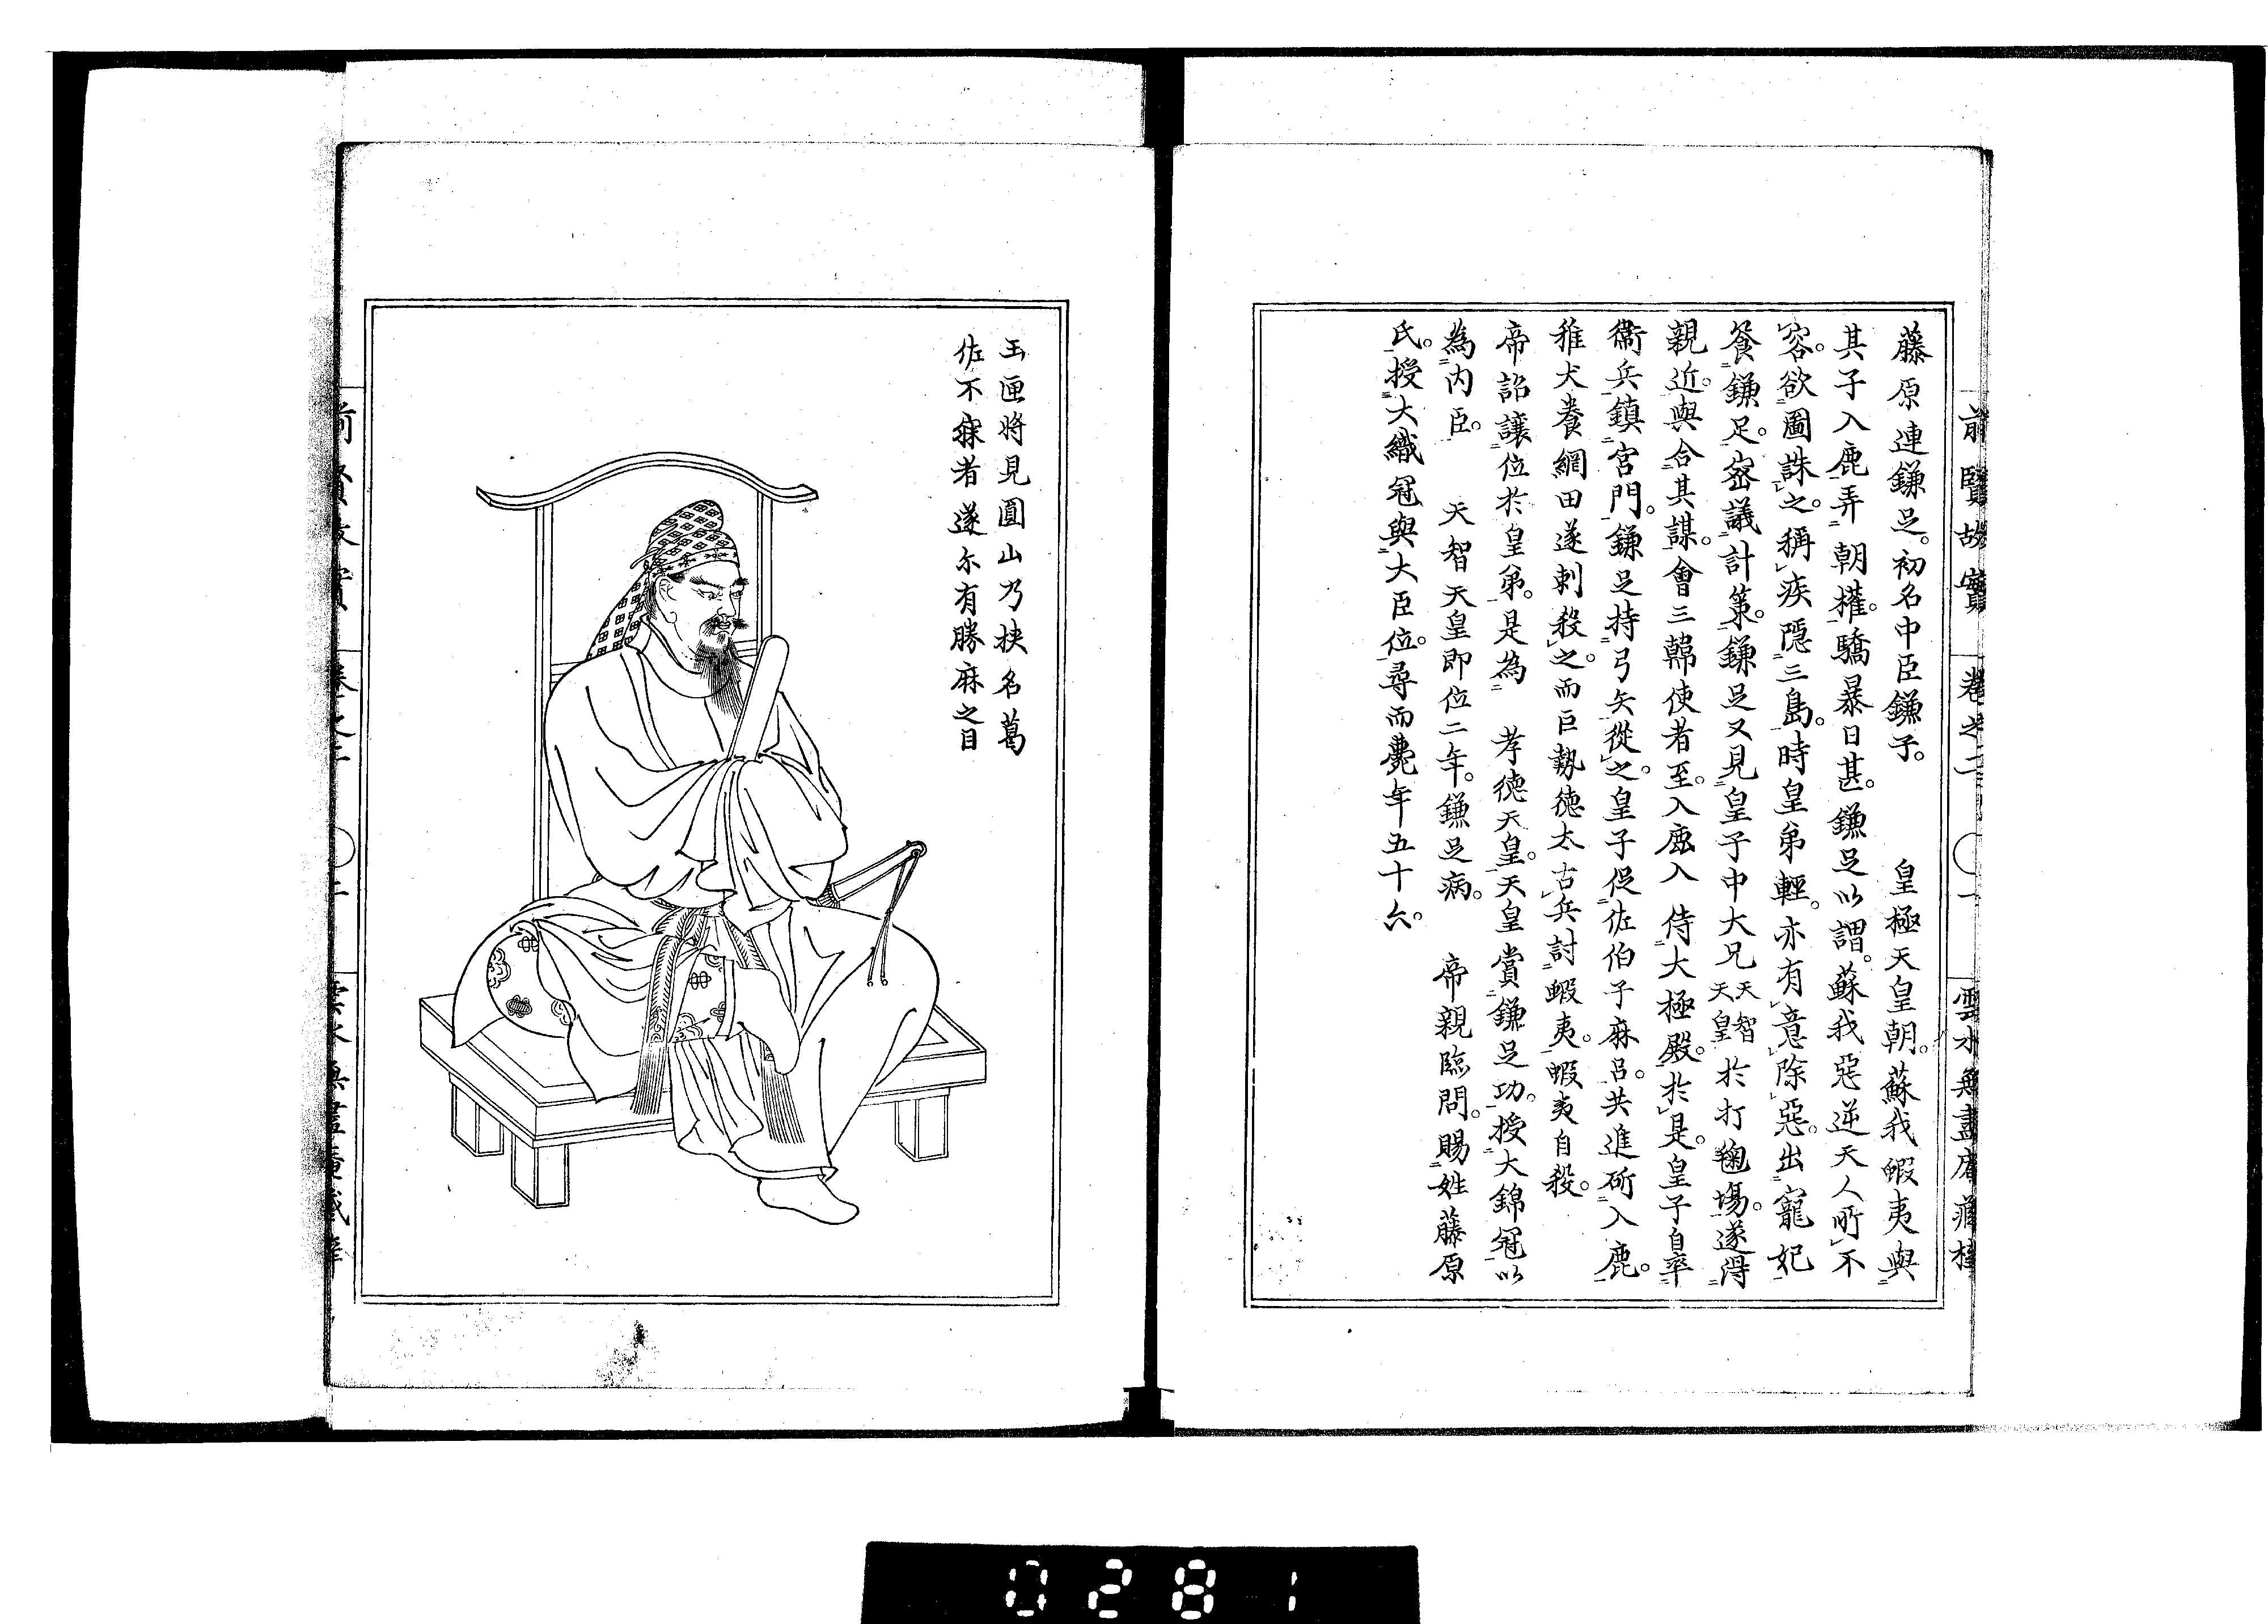 前賢故實 卷之二 雲水無盡庵藏
藤原連鎌足。初名中臣鎌子。 皇極天皇朝。蘇我蝦夷與
其子入鹿弄朝權。驕暴日甚。鎌足以謂。蘇我惡逆天人所不
容。欲圖誅之。稱疾隱三島。時皇弟輕。亦有意除惡。出寵妃
餐鎌足。密議計策。鎌足又見皇子中大兄天智天皇於打鞠場。遂得
親近。與合其謀。會三韓使者至。入鹿入侍大極殿。於是。皇子自率
衞兵鎮宮門。鎌足持弓矢從之。皇子促佐伯子麻呂。共進斫入鹿。
稚犬養網田遂刺殺之。而巨勢德太古兵討蝦夷。蝦夷自殺。
帝詔讓位於皇弟。是為 孝德天皇。天皇賞鎌足功。授大錦冠以
為內臣。 天智天皇即位二年。鎌足病。 帝親臨問。賜姓藤原
氏。授大織冠與大臣位。尋而薨年五十六。
玉匣將見圓山乃挾名葛
佐不寐者遂尓有勝麻之目
0281